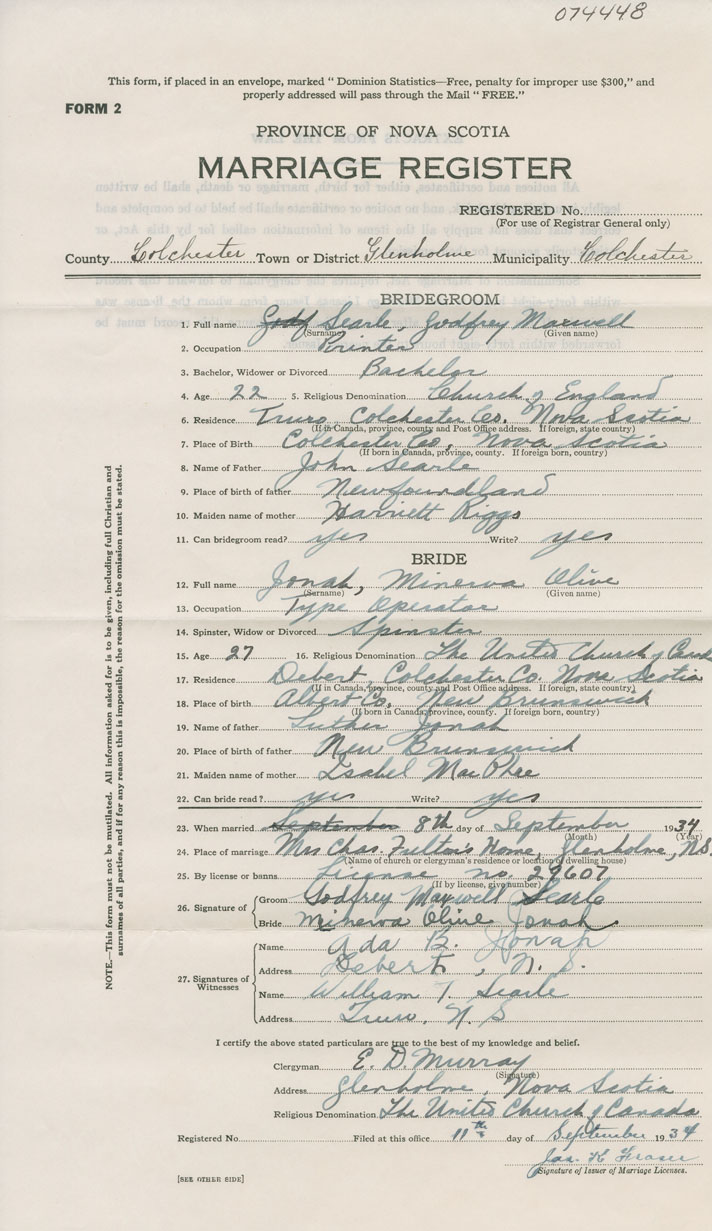 074448
This form, if placed in an envelope, marked " Dominion Statistics—Free, penalty for improper use $300," and
properly addressed will pass through the Mail " FREE."
FORM 2
PROVINCE OF NOVA SCOTIA
MARRIAGE REGISTER
REGISTERED No.
(For use of Registrar General only)
County Colchester Town or District Glenholme Municipality Colchester
BRIDEGROOM
1. Full name Searle, Godfrey Maxwell
(Surname) (Given name)
2. Occupation Printer
3. Bachelor, Widower or Divorced Bachelor
4. Age 22 5. Religious Denomination Church of England
6. Residence Truro Colchester Co. Nova Scotia
(If in Canada, province, county and Post Office address. If foreign, state country)
7. Place of Birth Colchester Co, Nova Scotia
(If born in Canada, province, county. If foreign born, country)
8. Name of Father John Searle
9. Place of birth of father Newfoundland
10. Maiden name of mother Harriett Riggs
11. Can bridegroom read? yes Write? yes
BRIDE
12. Full name Jonah, Minerva Olive
(Surname) (Given name)
13. Occupation Type Operator
14. Spinster, Widow or Divorced Spinster
15. Age 27 16. Religious Denomination The United Church of Canada
17. Residence Debert, Colchester Co. Nova Scotia
(If in Canada, province, county and Post Office address. If foreign, state country)
18. Place of birth Albert Co, New Brunswick
(If born in Canada, province, county. If foreign born, country)
19. Name of father Luther Jonah
20. Place of birth of father New Brunswick
21. Maiden name of mother Isabel MacPhee
22. Can bride read? yes Write? yes
23. When married September 8th day of September 1934
(Month) (Year)
24. Place of marriage Mrs Chas. Fulton's Home, Glenholme, N.S.
(Name of church or clergyman's residence or location of dwelling house)
25. By license or banns License no. 29607
(If by license, give number)
26. Signature of
Groom Godfrey Maxwell Searle
Bride Minerva Olive Jonah
27. Signatures of Witnesses
Name Ada B. Jonah
Address Debert, N. S.
Name William T. Searle
Address Truro, N. S
I certify the above stated particulars are true to the best of my knowledge and belief.
Clergyman E. D. Murray
(Signature)
Address Glenholme, Nova Scotia
Religious Denomination The United Church of Canada
Registered No. Filed at this office 11th day of September 1934
Jas. K Fraser
Signature of Issuer of Marriage Licenses.
[SEE OTHER SIDE]
NOTE.—This form must not be mutilated. All information asked for is to be given, including full Christian and
surnames of all parties, and if for any reason this is impossible, the reason for the omission must be stated.